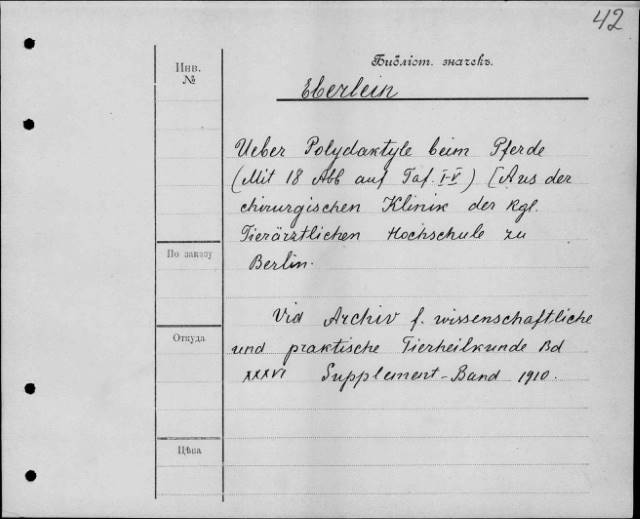 42
Инв.
№
Библіот. значекъ.
Eberlein
Ueber Polydaktyle beim Pferde
(Mit 18 Abb auf Taf. I-V) [Aus der
chirurgischen Klinik der kgl.
Tierärztlichen Hochschule zu
Berlin.
По заказу
Vid Archiv f. wissenschaftliche
Откуда
und praktische Tierheilkunde Bd
XXXVI Supplement-Band 1910.
Цѣна